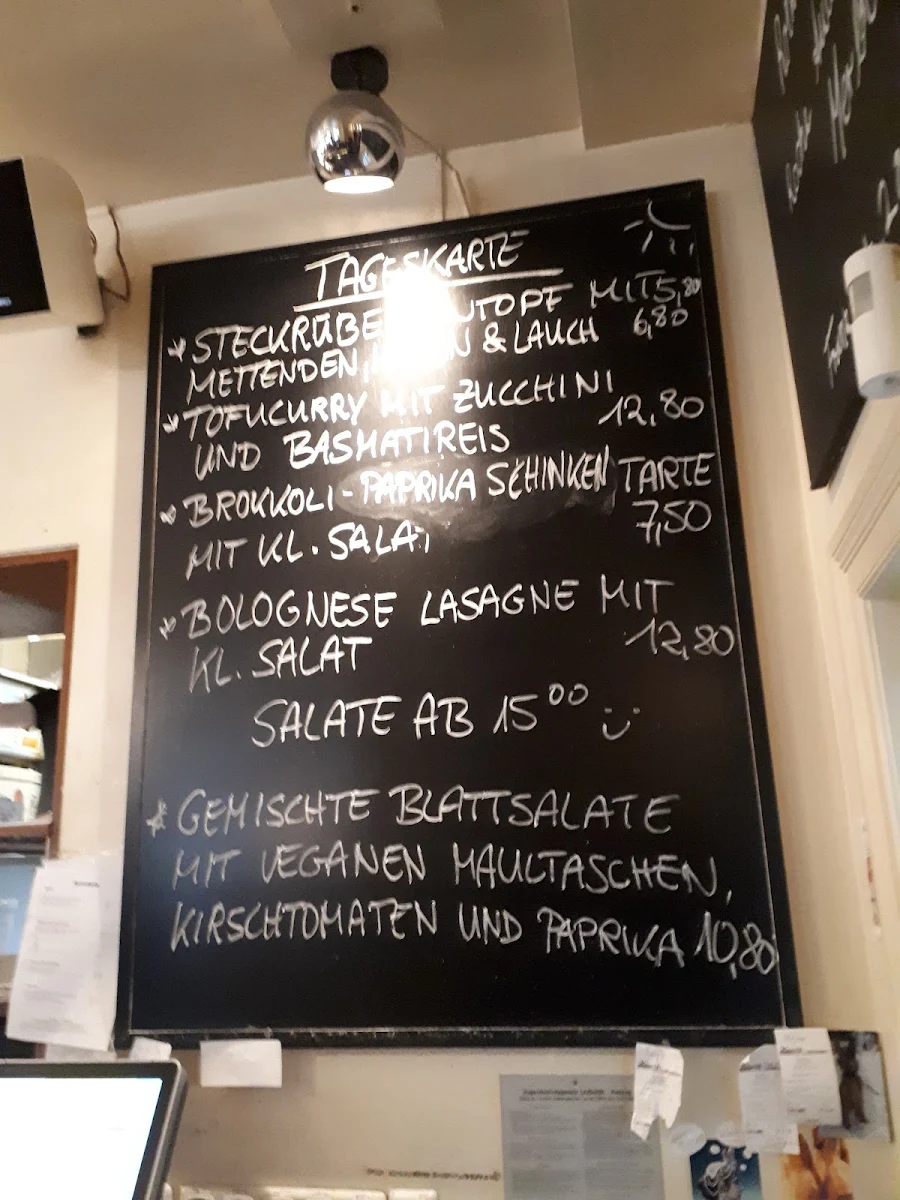 TAGESKARTE
MIT 5,80
METTENDEN, & LAUCH 6,80
TOFUCURRY MIT ZUCCHINI
UND BASMATIREIS 12,80
BROKKOLI-PAPRIKA SCHINKEN TARTE
MIT KL. SALAT 7,50
BOLOGNESE LASAGNE MIT
KL. SALAT 12,80
SALATE AB 15⁰⁰
GEMISCHTE BLATTSALATE
MIT VEGANEN MAULTASCHEN,
KIRSCHTOMATEN UND PAPRIKA 10,80